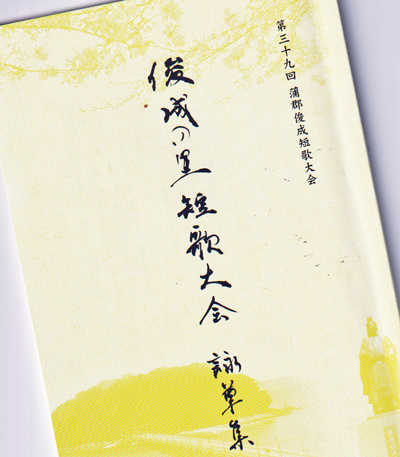 第三十九回 蒲郡俊成短歌大会
俊成の里短歌大会 詠草集